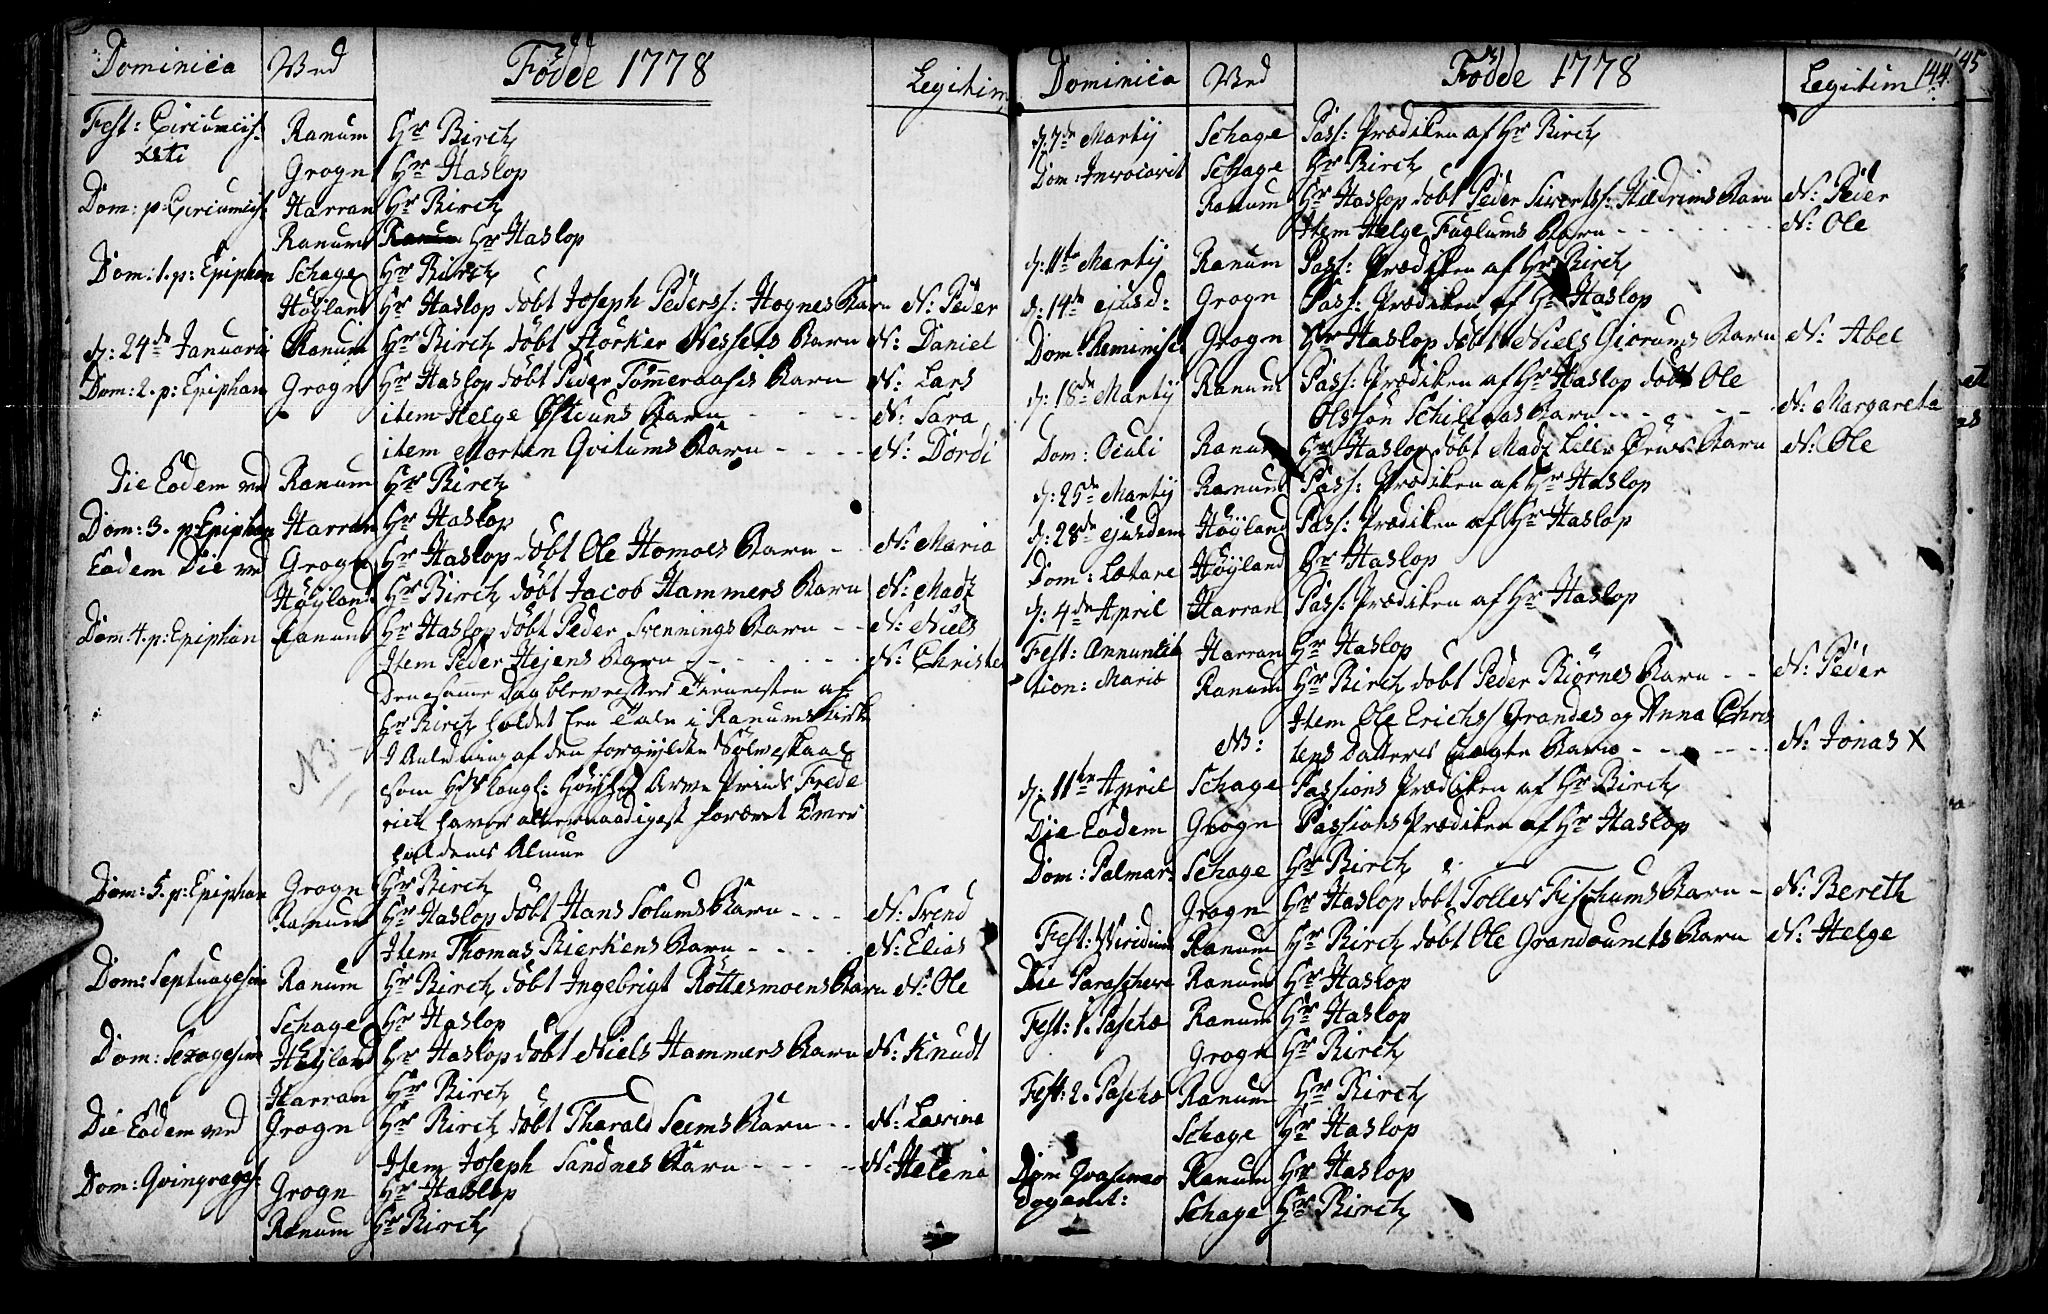 Dominica Ved Födde 1778 Legitim
Fest: Circumcis: Ranum Hr Birch
Xsti Grogn Hr Haslop
Dom: p: Circumcis: Harran Hr Birch
Ranum Ranum Hr Haslop
Dom: 1. p: Epiphan Schage Hr Birch
Höyland Hr Haslop döbt Joseph Pederss: Hognes Barn N: Peder
d: 24de Januarii Ranum Hr Birch döbt Storker Nesseis Barn N: Daniel
Dom: 2. p: Epiphan Grogn Hr Haslop döbt Peder Tömeraasis Barn N: Lars
item Helge Östuns Barn - - - N: Sara
item Morten Qvitums Barn - - - - N: Dordi
Die Eodem ved Ranum Hr Birch
Dom: 3. p Epiphan Harran Hr Haslop
Eodem Die ved Grogn Hr Haslop döbt Ole Homoes Barn - - N: Maria
Höyland Hr Birch döbt Jacob Hammers Barn N: Madz
Dom: 4. p: Epiphan Ranum Hr Haslop döbt Peder Svennings Barn - - N: Niels
Item Peder Hejens Barn - - - - - N: Christe
Den samme Dag blev efter Tienesten af
NB: Hr Birch holdet En Tale i Ranums Kirke
I Anledning af den forgyldte Sölveskaal
som Hs Kongl: Höyhed Arve Prinds Frede
rich haver allernaadigst foræret Over
haldens Almue
Dom: 5. p: Epiphan Grogn Hr Birch
Ranum Hr Haslop döbt Hans Solums Barn - - - N: Svend
Item Thomas Bierkens Barn - - - - N: Elias
Dom: Septuagesim Ranum Hr Birch döbt Ingebrigt Röttesmoens Barn N: Ole
Schage Hr Haslop
Dom: Sexagesim Höyland Hr Haslop döbt Niels Hammers Barn N: Knudt
Harran Hr Birch
Die Eodem ved Grogn Hr Birch döbt Tharald Seems Barn - - N: Lavrine
Item Joseph Sandnes Barn - - - - N: Helena
Dom: Qvinqvages: Grogn Hr Haslop
Ranum Hr Birch
Dominica Ved Födde 1778 Legitim 144. 145
d: 7de Martij Schage Pass: Prædiken af Hr Birch
Dom: Invocavit Schage Hr Birch
Ranum Hr Haslop döbt Peder Sivertss: Hildrims Barn N: Peder
Item Helge Fuglums Barn - - - - - - N: Ole
d: 11te Martij Ranum Pass: Prædiken af Hr Birch
d: 14de ejusd: Grogn Pass: Prædiken af Hr Haslop
Dom: Reminisc: Grogn Hr Haslop döbt Niels Gierums Barn N: Abel
d: 18de Martij Ranum Pass: Prædiken af Hr Haslop döbt Ole
Olssön Schillaas Barn - - - - - N: Margareta
Dom: Oculi Ranum Hr Haslop döbt Madz Lille Barn N: Ole
d: 25de Martij Ranum Pass: Prædiken af Hr Haslop
d: 28de ejusdem Höyland Pass: Prædiken af Hr Haslop
Dom: Lætare Höyland Hr Haslop
d: 4de April Harran Pass: Prædiken af Hr Haslop
Fest: Annuntia Harran Hr Haslop
tion: Mariæ Ranum Hr Birch döbt Peder Biörnes Barn - - N: Peder
Item Ole Erichs: Grandes og Anna Chris
NB: tens Datters uægte Barn - - - - - - N: Jonas X
d: 11te April Schage Passions Prædiken af Hr Birch
Die Eodem Grogn Passions Prædiken af Hr Haslop
Dom: Palmar: Schage Hr Birch
Grogn Hr Haslop döbt Tolles Fischums Barn - N: Bereth
Fest: Viridium Ranum Hr Birch döbt Ole Grandounets Barn N: Helge
Die Parascheve Ranum Hr Haslop
Fest: 1. Paschæ Ranum Hr Haslop
Grogn Hr Birch
Fest: 2. Paschæ Ranum Hr Birch
Schage Hr Haslop
Dom Qvasimo Ranum Hr Haslop
dogenit: Schage Hr Birch